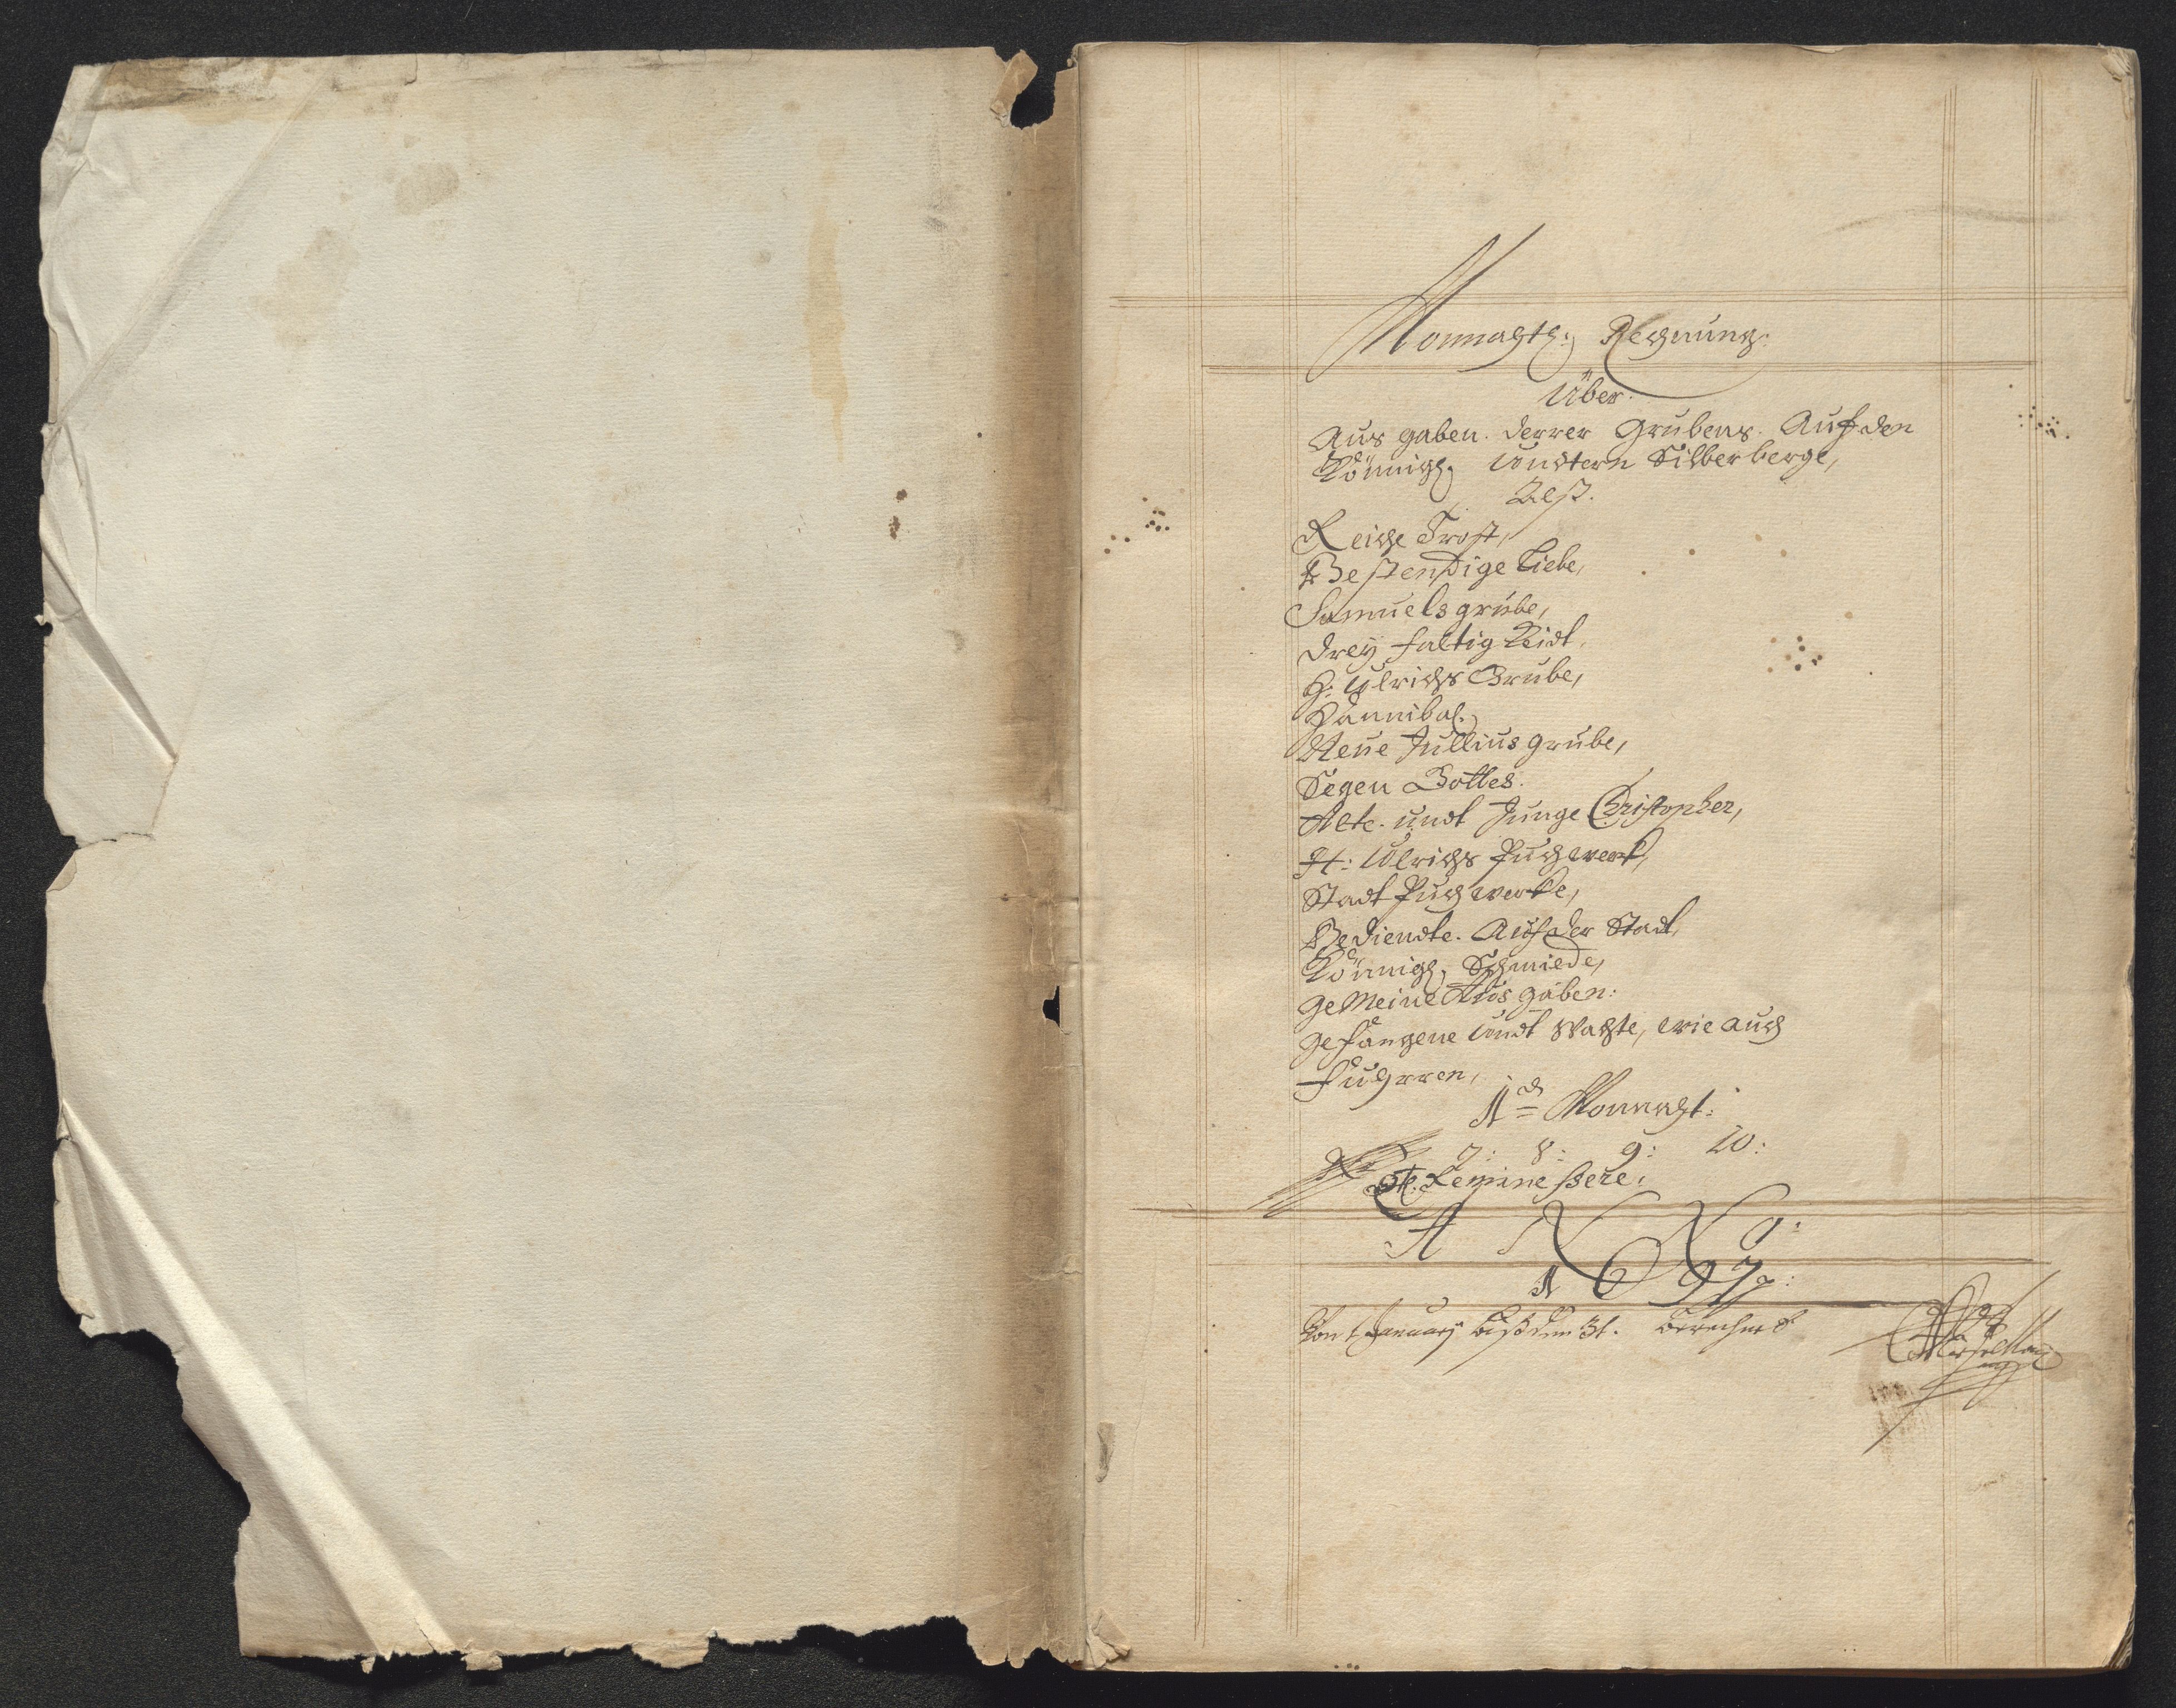 Monnahtl: Rechnung:
Über.
Aus gaben. derrer Grubens. Auf den
Königl. Undtern Silberberge,
Alß.
Reiche Trost,
Bestendige Liebe,
Samuels grube,
Drey faltig Keidt
H: Ulrichs Grube,
Hannibal.
Neue Jullius grube,
Segen Gottes.
Alte. undt Junge Christopher,
H: Ulrichs Puchwerk,
Stadt Puchwerke,
Bediendte. Auf der Stadt,
Königl. Schmiede,
Gemeine Aus gaben:
Gefangene Undt Wachte, wie auch
Fuhrren,
1 Monnaht:
7: 8: 9: 10:
Reminescere,
A N N O:
1697:
Von 1 January biß den 31. berechnet